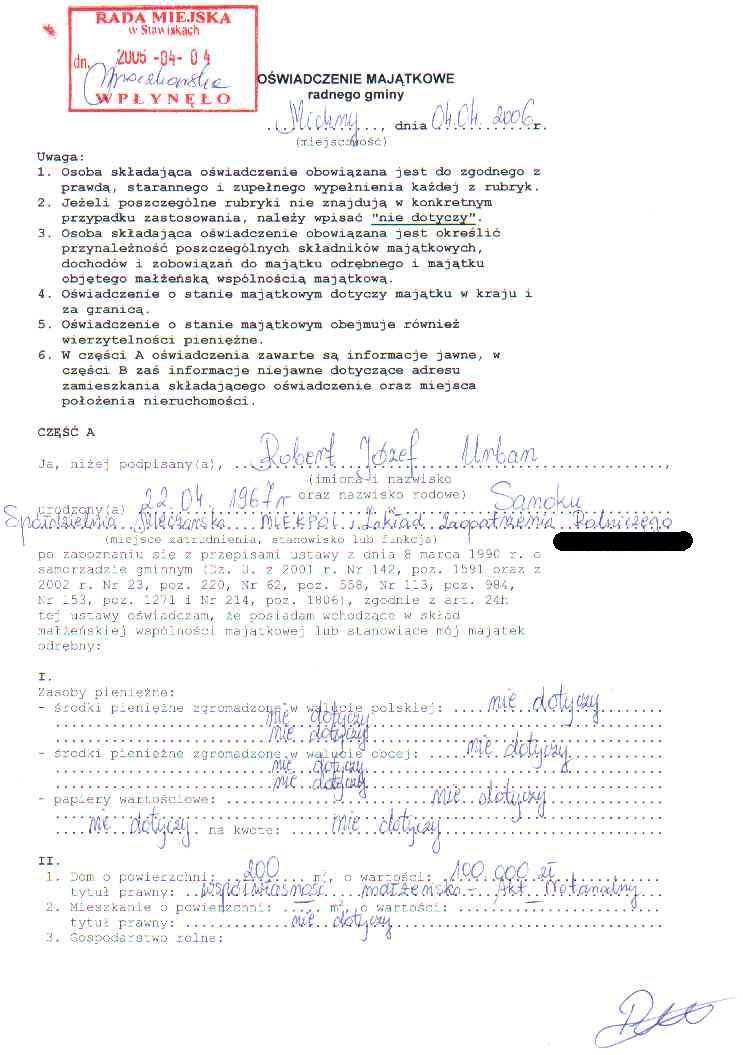 RADA MIEJSKA
w Stawiskach
dn. 2006 -04- 04
WPŁYNĘŁO
OŚWIADCZENIE MAJĄTKOWE
radnego gminy
..Mieczki.., dnia 04.04.2006.r.
(miejscowość)
Uwaga:
1. Osoba składająca oświadczenie obowiązana jest do zgodnego z
prawdą, starannego i zupełnego wypełnienia każdej z rubryk.
2. Jeżeli poszczególne rubryki nie znajdują w konkretnym
przypadku zastosowania, należy wpisać "nie dotyczy".
3. Osoba składająca oświadczenie obowiązana jest określić
przynależność poszczególnych składników majątkowych,
dochodów i zobowiązań do majątku odrębnego i majątku
objętego małżeńską wspólnością majątkową.
4. Oświadczenie o stanie majątkowym dotyczy majątku w kraju i
za granicą.
5. Oświadczenie o stanie majątkowym obejmuje również
wierzytelności pieniężne.
6. W części A oświadczenia zawarte są informacje jawne, w
części B zaś informacje niejawne dotyczące adresu
zamieszkania składającego oświadczenie oraz miejsca
położenia nieruchomości.
CZĘŚĆ A
Ja, niżej podpisany(a), Robert Józef Urban
(imiona i nazwisko
oraz nazwisko rodowe)
urodzony(a) 22.04.1967r w Sanoku
Spółdzielnia Mleczarska MLEKPOL Zakład Zaopatrzenia Rolniczego
(miejsce zatrudnienia, stanowisko lub funkcja)
po zapoznaniu się z przepisami ustawy z dnia 8 marca 1990 r. o
samorządzie gminnym (Dz. U. z 2001 r. Nr 142, poz. 1591 oraz z
2002 r. Nr 23, poz. 220, Nr 62, poz. 558, Nr 113, poz. 984,
Nr 153, poz. 1271 i Nr 214, poz. 1806), zgodnie z art. 24h
tej ustawy oświadczam, że posiadam wchodzące w skład
małżeńskiej wspólności majątkowej lub stanowiące mój majątek
odrębny:
I.
Zasoby pieniężne:
- środki pieniężne zgromadzone w walucie polskiej: nie dotyczy
nie dotyczy
nie dotyczy
- środki pieniężne zgromadzone w walucie obcej: nie dotyczy
nie dotyczy
nie dotyczy
- papiery wartościowe: nie dotyczy
nie dotyczy na kwotę: nie dotyczy
II.
1. Dom o powierzchni: 200 m², o wartości: 100 000 zł
tytuł prawny: współwłasność małżeńska - Akt Notarialny
2. Mieszkanie o powierzchni: – m², o wartości: –
tytuł prawny: nie dotyczy
3. Gospodarstwo rolne: